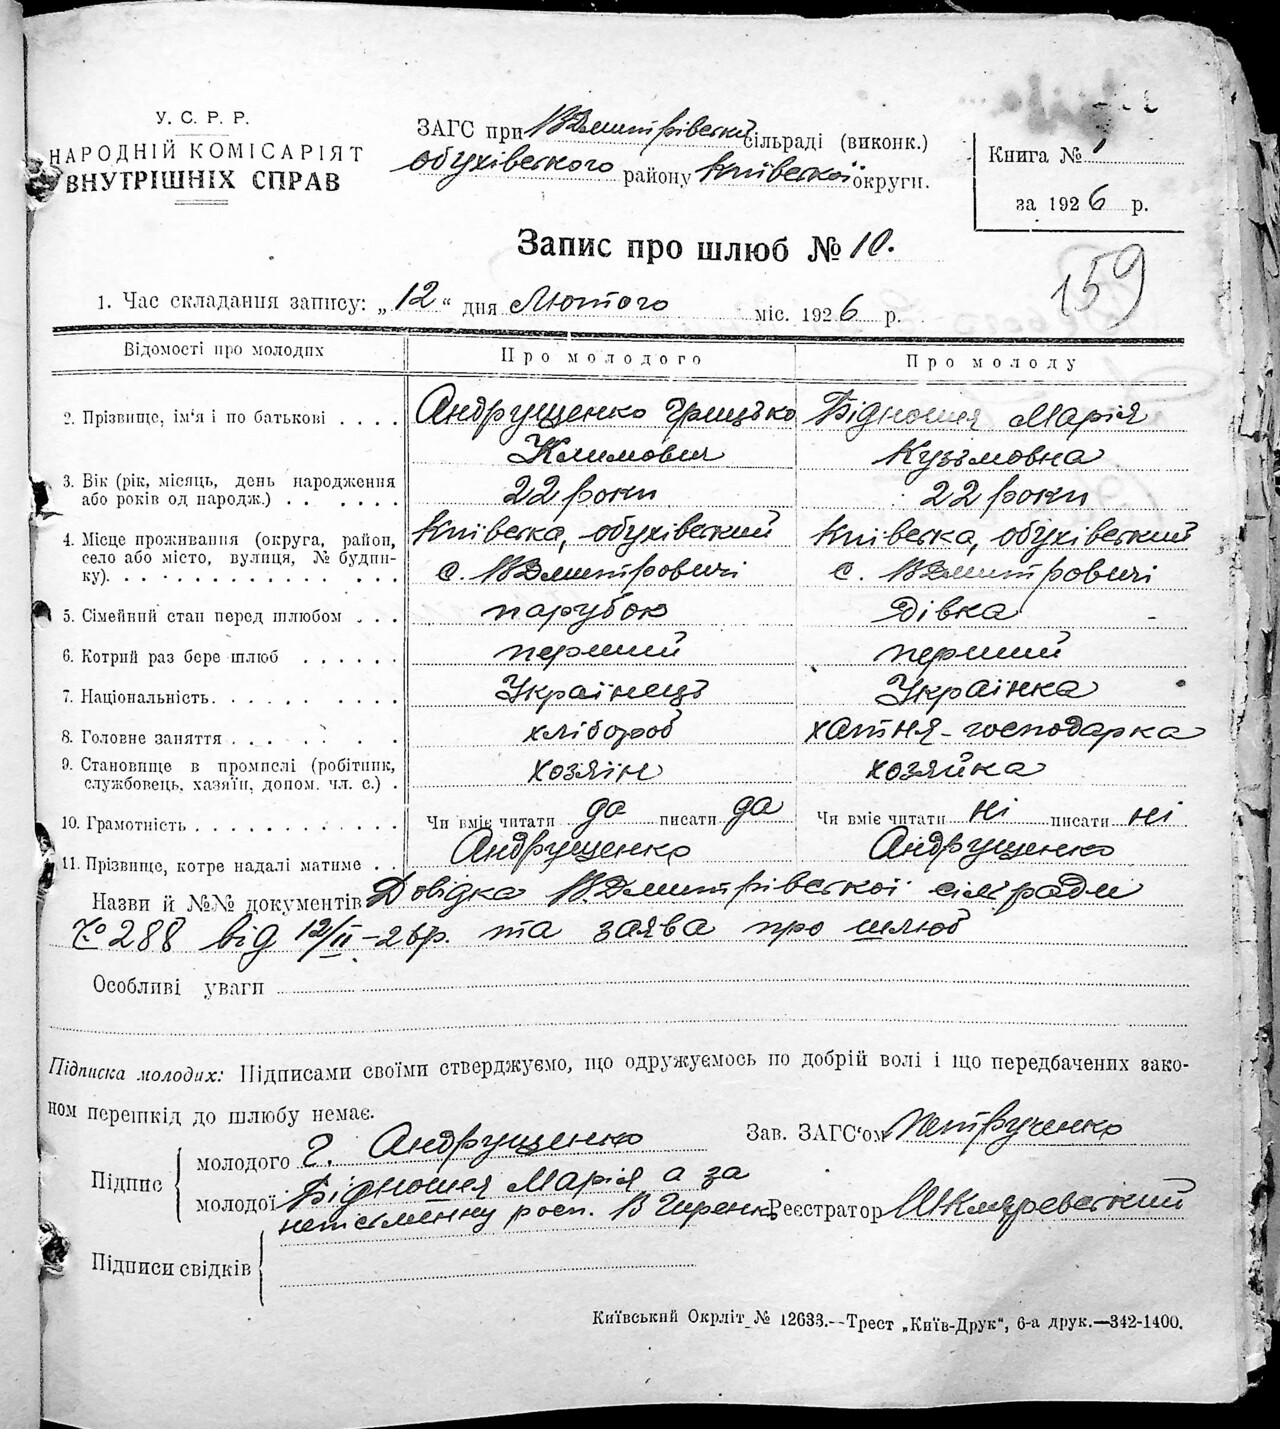 У. С. Р. Р.
НАРОДНІЙ КОМІСАРІЯТ
ВНУТРІШНІХ СПРАВ
ЗАГС при В Дмитрівській сільраді (виконк.)
обухівського району Київської округи.
Книга № 1
за 1926 р.
Запис про шлюб № 10.
159
1. Час складання запису: „12“ дня Лютого міс. 1926 р.
Відомості про молодих Про молодого Про молоду
2. Прізвище, ім'я і по батькові . . . . Андрущенко Грицько Бідношия Марія
Климович Кузьмовна
3. Вік (рік, місяць, день народження
або років од народж.) . . . . . . 22 роки 22 роки
4. Місце проживання (округа, район, Київська, обухівський Київська, обухівський
село або місто, вулиця, № будин-
ку). . . . . . . . . . . . . . . . с. В Дмитровичі с. В Дмитровичі
5. Сімейний стан перед шлюбом . . . парубок дівка
6. Котрий раз бере шлюб . . . . . . перший перший
7. Національність. . . . . . . . . . Українець Українка
8. Головне заняття . . . . . . . . хлібороб хатня-господарка
9. Становище в промислі (робітник,
службовець, хазяїн, допом. чл. с.) . хозяін хозяйка
10. Грамотність . . . . . . . . . . . . Чи вміє читати да писати да Чи вміє читати ні писати ні
11. Прізвище, котре надалі матиме . . Андрущенко Андрущенко
Назви й №№ документів Довідка В.Дмитрівської сільради
№ 288 від 12/II-26р. та заява про шлюб
Особливі уваги
Підписка молодих: Підписами своїми стверджуємо, що одружуємось по добрій волі і що передбачених зако-
ном перешкід до шлюбу немає.
Зав. ЗАГС'ом
Підпис
молодого Г. Андрущенко
молодої Бідношия Марія а за
неписьменну росп. В Гиренко
Реєстратор Шкляревський
Підписи свідків
Київський Окрліт № 12633.—Трест „Київ-Друк“, 6-а друк.—342-1400.